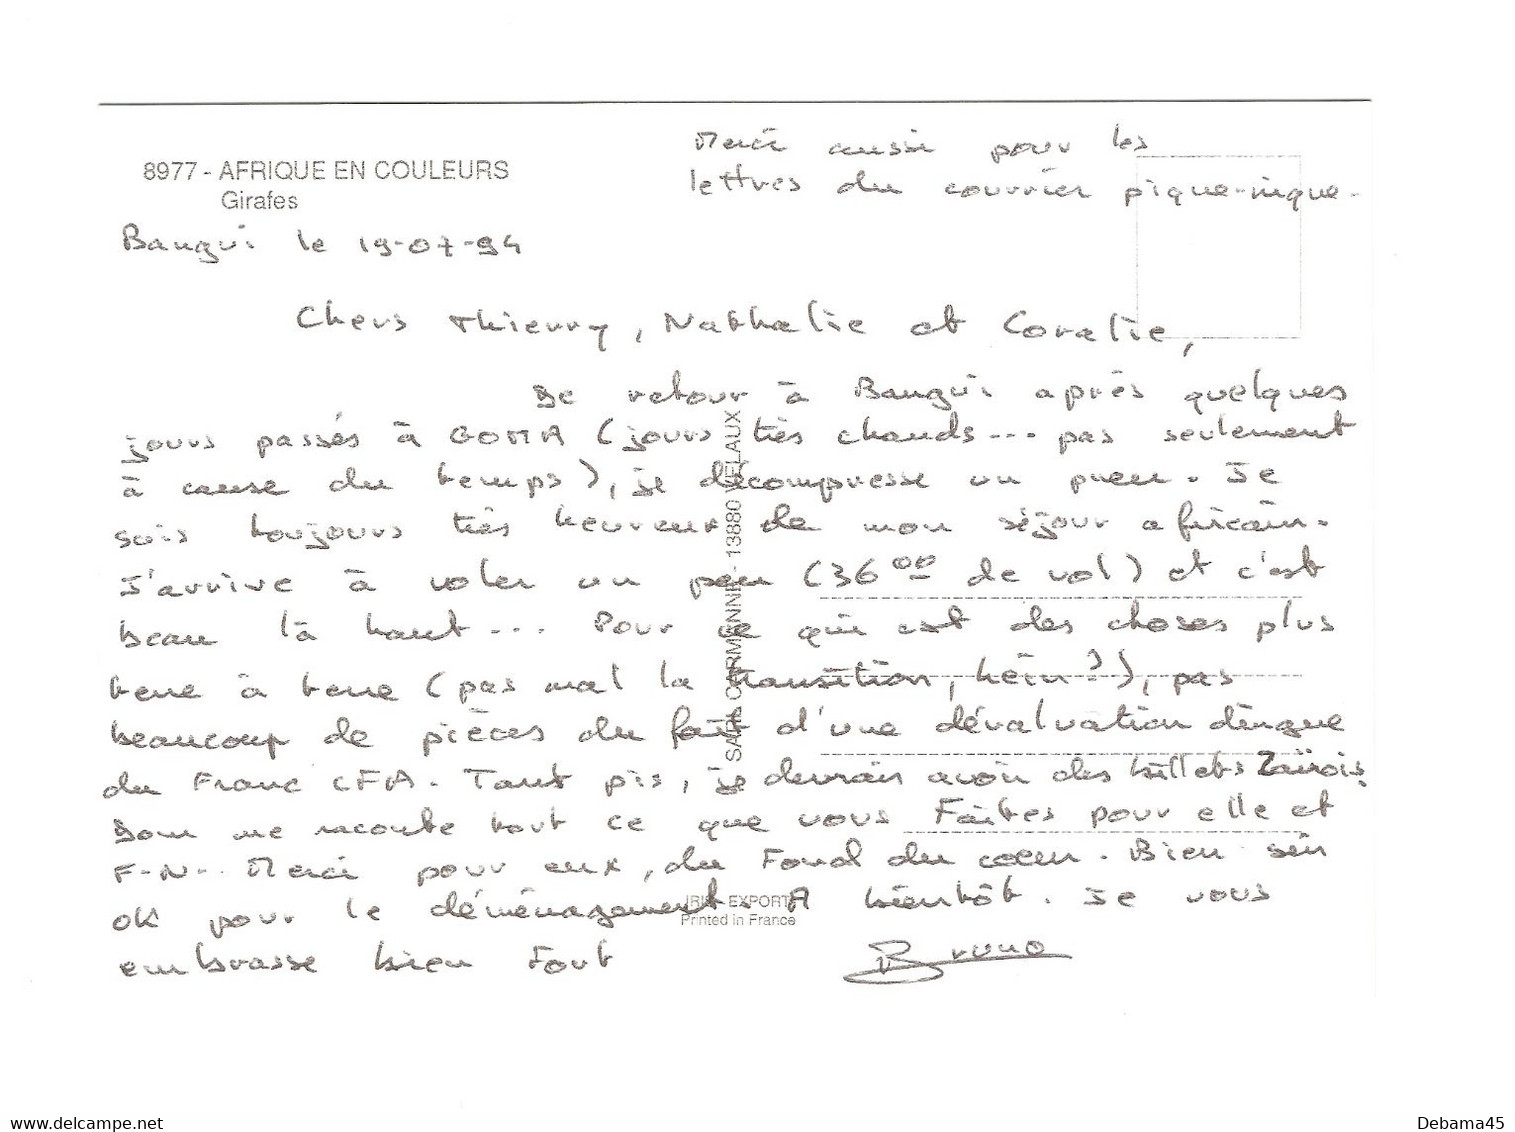 8977 - AFRIQUE EN COULEURS
Girafes
Merci aussi pour les
lettres du courrier pique-nique.
Bangui le 19-07-94
Chers Thierry, Nathalie et Coralie,
De retour à Bangui après quelques
jours passés à GOMA (jours très chauds... pas seulement
à cause du temps), je décompresse un peu. Je
suis toujours très heureux de mon séjour africain.
J'arrive à voler un peu (36°° de vol) et c'est
beau là haut... Pour ce qui est des choses plus
terre à terre (pas mal la transition, hein?), pas
beaucoup de pièces du fait d'une dévaluation dingue
du Franc CFA. Tant pis, je devrais avoir des billets Zaïrois.
Dom me raconte tout ce que vous Faites pour elle et
F-N. Merci pour eux, du Fond du coeur. Bien sûr
OK pour le déménagement. A bientôt. Je vous
embrasse bien Fort
Bruno
13880 VELAUX
IRIS EXPORT
Printed in France
www.delcampe.net
Debama45